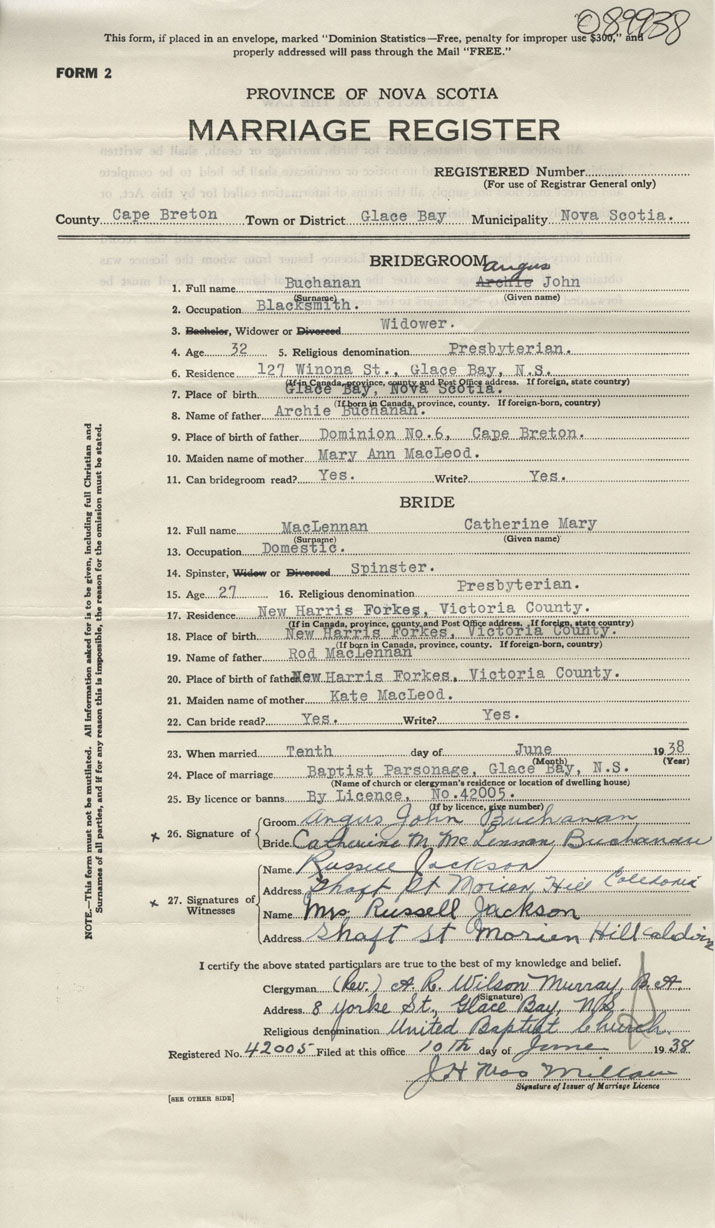 089938
This form, if placed in an envelope, marked "Dominion Statistics—Free, penalty for improper use $300," and
properly addressed will pass through the Mail "FREE."
FORM 2
PROVINCE OF NOVA SCOTIA
MARRIAGE REGISTER
REGISTERED Number
(For use of Registrar General only)
County Cape Breton Town or District Glace Bay Municipality Nova Scotia.
BRIDEGROOM
Angus
1. Full name Buchanan Archie John
(Surname) (Given name)
2. Occupation Blacksmith.
3. Bachelor, Widower or Divorced Widower.
4. Age 32 5. Religious denomination Presbyterian.
6. Residence 127 Winona St., Glace Bay, N.S.
(If in Canada, province, county and Post Office address. If foreign, state country)
7. Place of birth Glace Bay, Nova Scotia.
(If born in Canada, province, county. If foreign-born, country)
8. Name of father Archie Buchanan.
9. Place of birth of father Dominion No.6, Cape Breton.
10. Maiden name of mother Mary Ann MacLeod.
11. Can bridegroom read? Yes. Write? Yes.
BRIDE
12. Full name MacLennan Catherine Mary
(Surname) (Given name)
13. Occupation Domestic.
14. Spinster, Widow or Divorced Spinster.
15. Age 27 16. Religious denomination Presbyterian.
17. Residence New Harris Forkes, Victoria County.
(If in Canada, province, county and Post Office address. If foreign, state country)
18. Place of birth New Harris Forkes, Victoria County.
(If born in Canada, province, county. If foreign-born, country)
19. Name of father Rod MacLennan
20. Place of birth of father New Harris Forkes, Victoria County.
21. Maiden name of mother Kate MacLeod.
22. Can bride read? Yes. Write? Yes.
23. When married Tenth day of June 1938
(Month) (Year)
24. Place of marriage Baptist Parsonage, Glace Bay, N.S.
(Name of church or clergyman's residence or location of dwelling house)
25. By licence or banns By Licence, No.42005.
(If by licence, give number)
x 26. Signature of
Groom Angus John Buchanan
Bride Catherine M McLennan Buchanan
x 27. Signatures of Witnesses
Name Russell Jackson
Address Shaft St Morien Hill Caledonia
Name Mrs Russell Jackson
Address Shaft St Morien Hill
I certify the above stated particulars are true to the best of my knowledge and belief.
Clergyman (Rev.) A. R. Wilson Murray, B.A.
(Signature)
Address 8 Yorke St., Glace Bay, N.S.
Religious denomination United Baptist Church.
Registered No. 42005 Filed at this office 10th day of June 1938
J H MacMillan
Signature of Issuer of Marriage Licence
[SEE OTHER SIDE]
NOTE.—This form must not be mutilated. All information asked for is to be given, including full Christian and
Surnames of all parties, and if for any reason this is impossible, the reason for the omission must be stated.